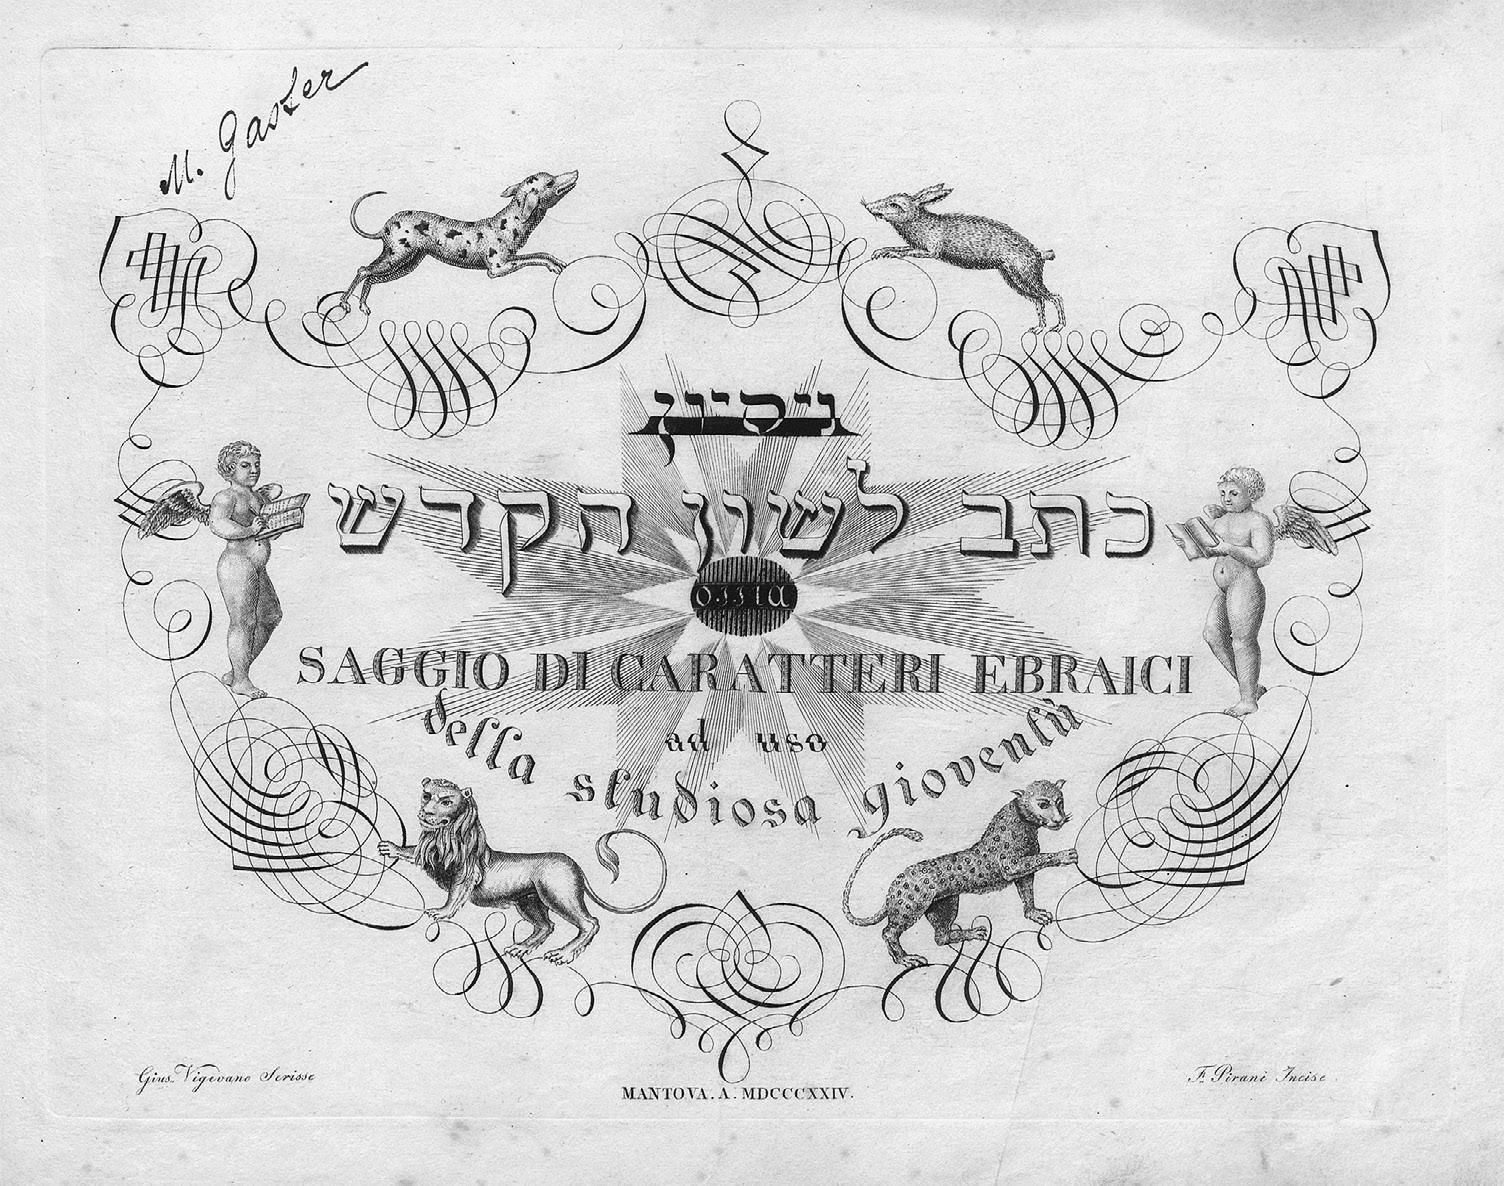 M. Gaster
ניסיון
כתב לשון הקדש
ossia
SAGGIO DI CARATTERI EBRAICI
ad uso
della studiosa gioventù
Gius. Vigevano Scrisse
MANTOVA. A. MDCCCXXIV.
F. Pirani Incise